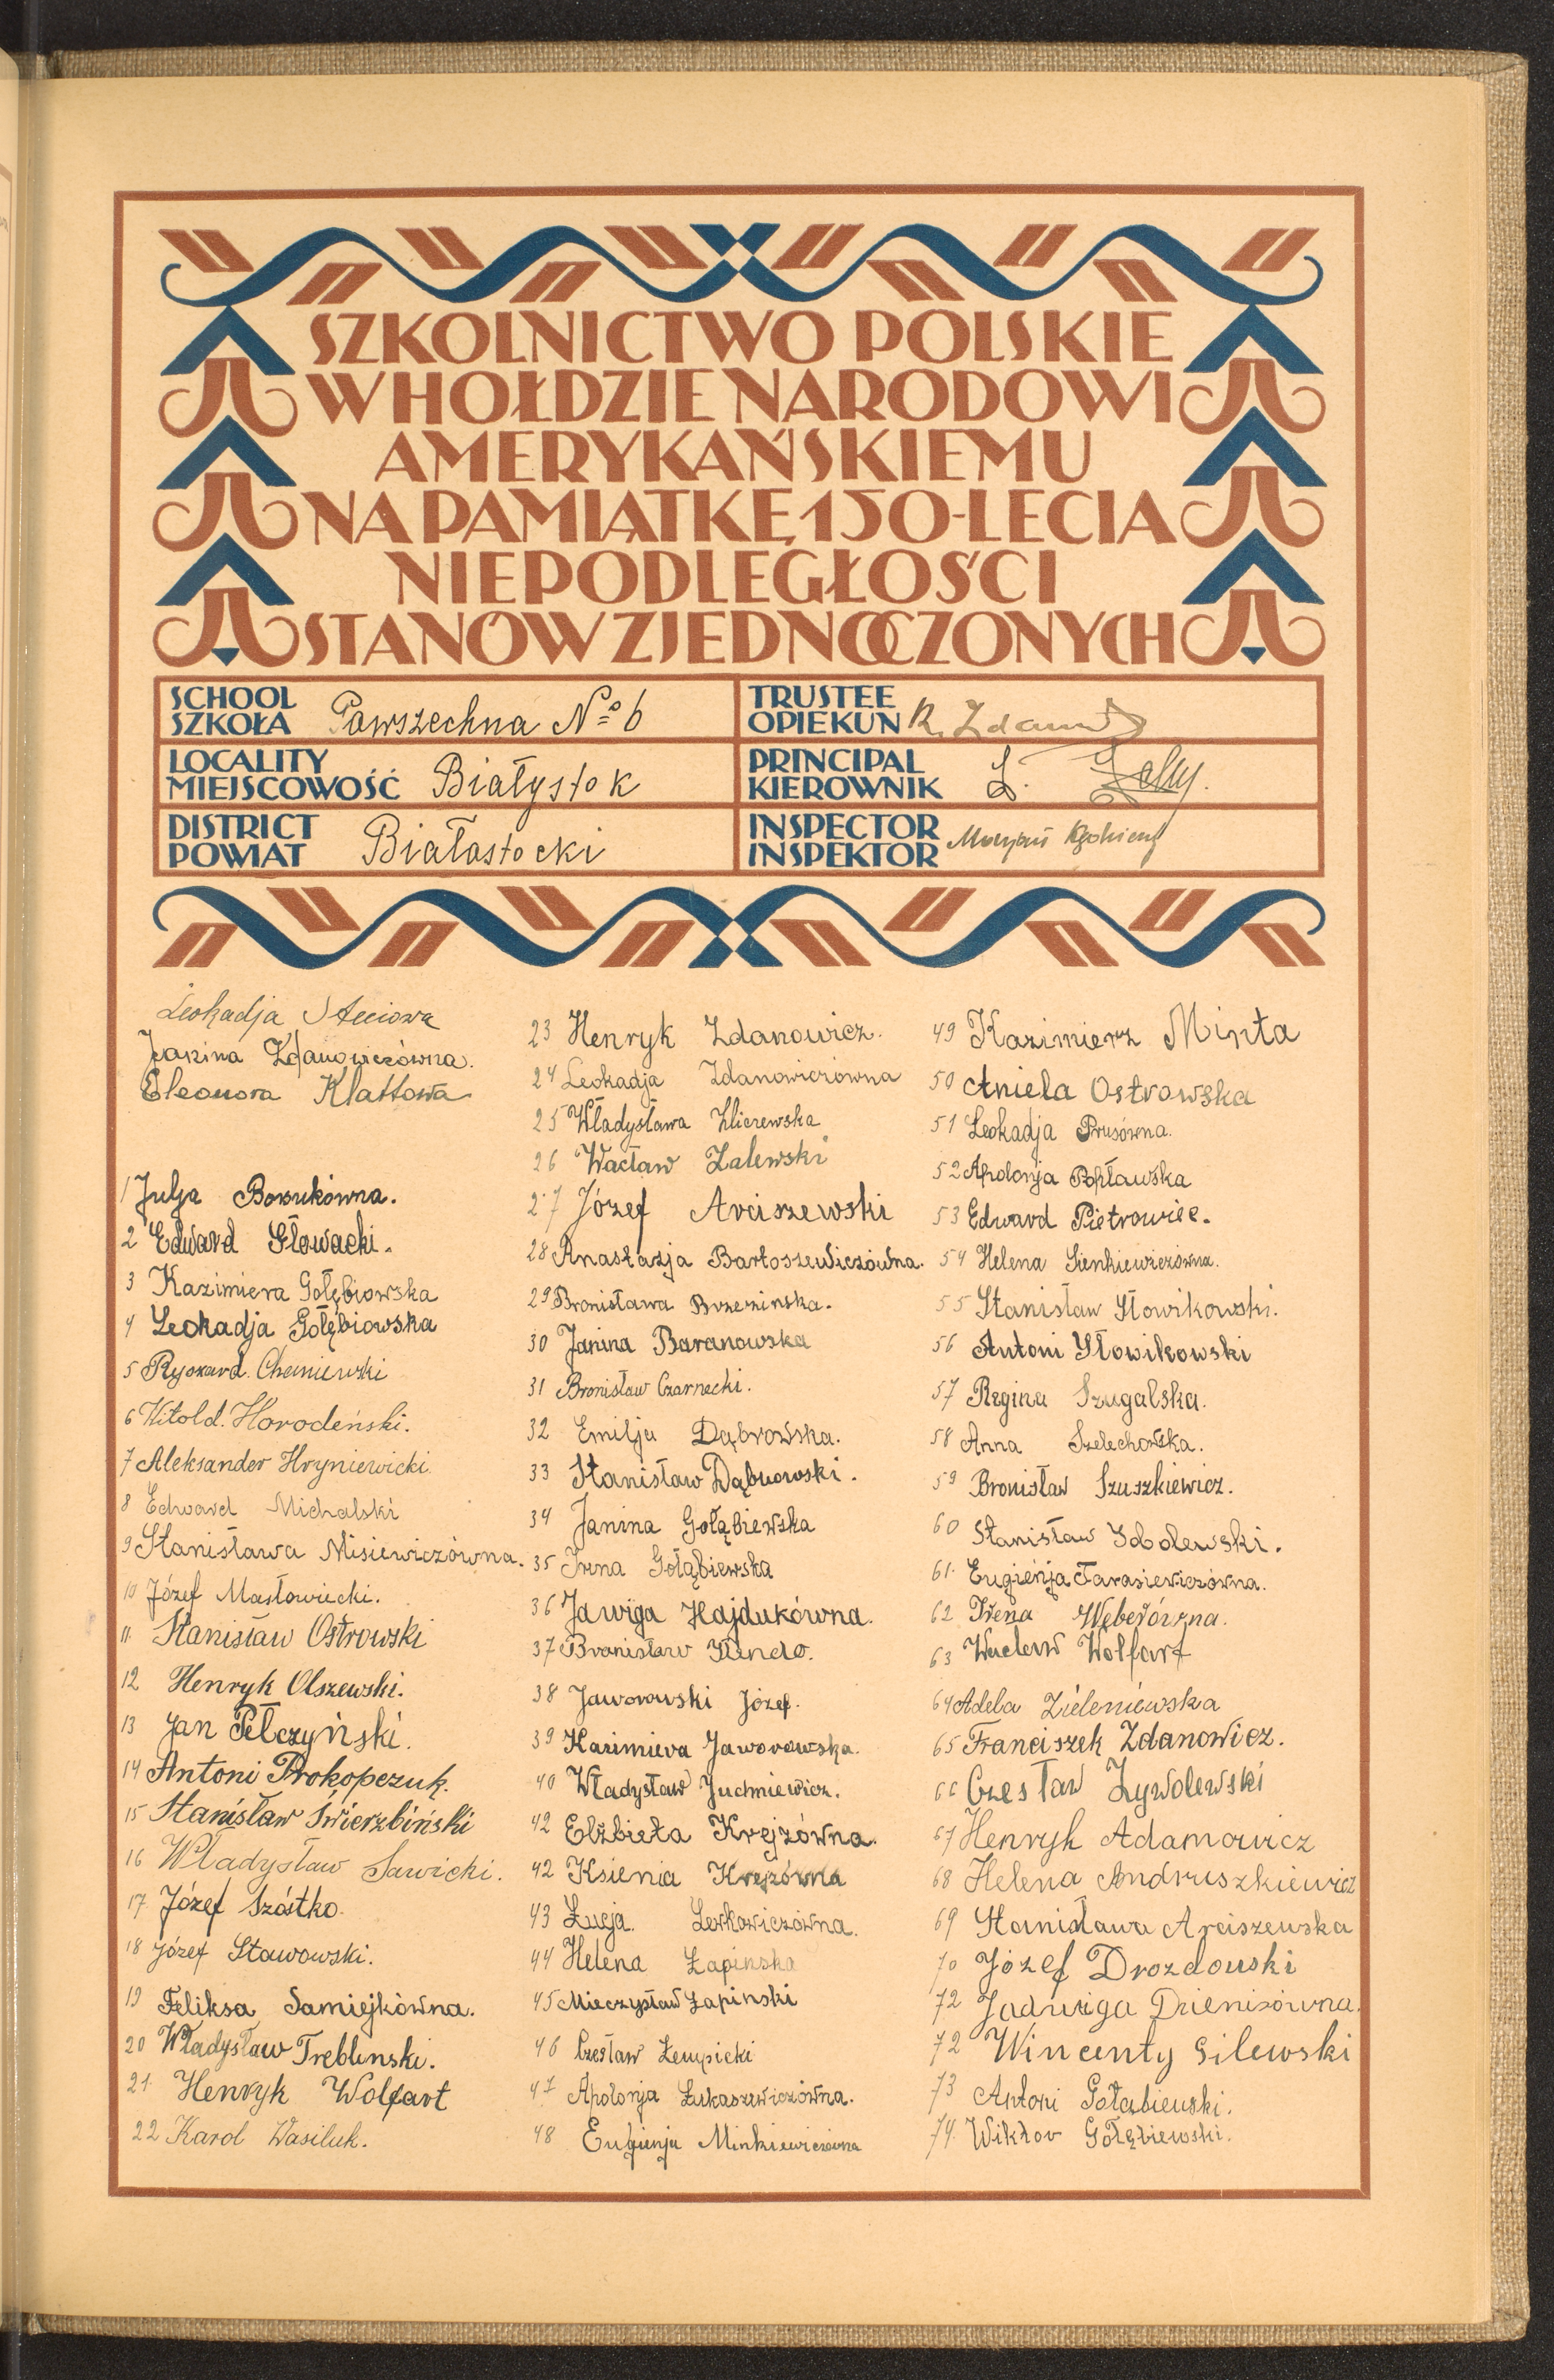 SZKOLNICTWO POLSKIE
W HOŁDZIE NARODOWI
AMERYKAŃSKIEMU
NA PAMIĄTKĘ 150-LECIA
NIEPODLEGŁOŚCI
STANÓW ZJEDNOCZONYCH
SCHOOL
SZKOŁA Powszechna No 6
TRUSTEE
OPIEKUN R.
LOCALITY
MIEJSCOWOŚĆ Białystok
PRINCIPAL
KIEROWNIK
DISTRICT
POWIAT Białostocki
INSPECTOR
INSPEKTOR
Leokadja
Janina Zdanowiczówna.
Eleonora Klattowa
1 Julja Borukówna.
2 Edward Głowacki.
3 Kazimiera Gołębiowska
4 Leokadja Gołębiowska
5 Ryszard Chaniewski
6 Witold. Horodeński.
7 Aleksander Hryniewicki.
8 Edward Michalski
9 Stanisława Misiewiczówna.
10 Józef Masłowiecki.
11 Stanisław Ostrowski
12 Henryk Olszewski.
13 Jan Pełczyński.
14 Antoni Prokopczuk.
15 Stanisław Świerzbiński
16 Władysław Sawicki.
17 Józef Szóstko.
18 Józef Stawowski.
19 Feliksa Samiejkówna.
20 Władysław Treblinski.
21 Henryk Wolfart
22 Karol Wasiluk.
23 Henryk Zdanowicz.
24 Leokadja Zdanowiczówna
25 Władysława Zliczewska
26 Wacław Zalewski
27 Józef Arciszewski
28 Anastazja Bartoszewiczówna.
29 Bronisława Brzezinska.
30 Janina Baranowska
31 Bronisław Czarnecki.
32 Emilja Dąbrowska.
33 Stanisław Dąbrowski.
34 Janina Gołąbiewska
35 Irena Gołąbiewska
36 Jawiga Hajdukówna.
37 Bronisław
38 Jaworowski Józef.
39 Kazimiera Jaworowska.
40 Władysław Juchniewicz.
42 Elżbieta Krejzówna.
42 Ksienia Krejzówna
43 Łucja. Lewkowiczówna.
44 Helena Łapinska
45 Mieczysław Łapinski
46 Czesław Łempicki
47 Apolonja Łukaszewiczówna.
48 Eugienja Minkiewiczówna
49 Kazimierz Minta
50 Aniela Ostrowska
51 Leokadja Prusówna.
52 Apolonja Popławska
53 Edward Pietrowiec.
54 Helena Sienkiewiczówna.
55 Stanisław Słowikowski.
56 Antoni Słowikowski
57 Regina Szugalska.
58 Anna Szelechowska.
59 Bronisław Szuszkiewicz.
60 Stanisław Sobolewski.
61. Eugieńja Tarasiewiczówna.
62 Irena Weberówna.
63 Wacław Wolfart
64 Adela Zieleniewska
65 Franciszek Zdanowicz.
66 Czesław Żywolewski
67 Henryk Adamowicz
68 Helena Andruszkiewicz
69 Stanisława Arciszewska
70 Józef Drozdowski
72 Jadwiga Dzienisówna.
72 Wincenty Gilewski
73 Antoni Gołabiewski.
74. Wiktor Gołębiewski.